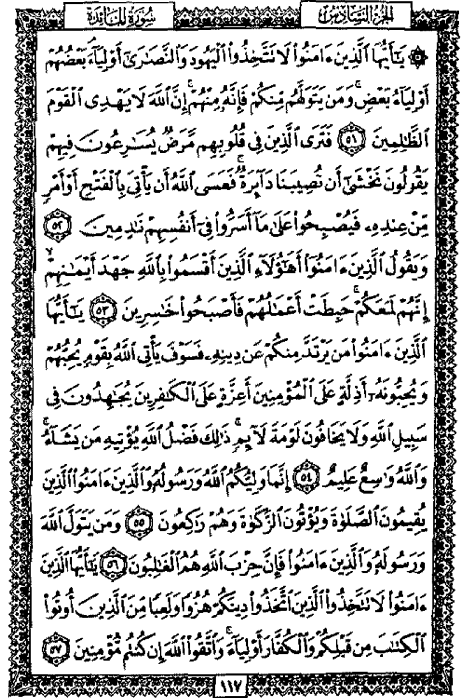 الجزء السادس
سورة المائدة
۞ يَٰٓأَيُّهَا ٱلَّذِينَ ءَامَنُوا۟ لَا تَتَّخِذُوا۟ ٱلْيَهُودَ وَٱلنَّصَٰرَىٰٓ أَوْلِيَآءَ ۘ بَعْضُهُمْ
أَوْلِيَآءُ بَعْضٍ ۚ وَمَن يَتَوَلَّهُم مِّنكُمْ فَإِنَّهُۥ مِنْهُمْ ۗ إِنَّ ٱللَّهَ لَا يَهْدِى ٱلْقَوْمَ
ٱلظَّٰلِمِينَ ٥١ فَتَرَى ٱلَّذِينَ فِى قُلُوبِهِم مَّرَضٌ يُسَٰرِعُونَ فِيهِمْ
يَقُولُونَ نَخْشَىٰٓ أَن تُصِيبَنَا دَآئِرَةٌ ۚ فَعَسَى ٱللَّهُ أَن يَأْتِىَ بِٱلْفَتْحِ أَوْ أَمْرٍ
مِّنْ عِندِهِۦ فَيُصْبِحُوا۟ عَلَىٰ مَآ أَسَرُّوا۟ فِىٓ أَنفُسِهِمْ نَٰدِمِينَ ٥٢
وَيَقُولُ ٱلَّذِينَ ءَامَنُوٓا۟ أَهَٰٓؤُلَآءِ ٱلَّذِينَ أَقْسَمُوا۟ بِٱللَّهِ جَهْدَ أَيْمَٰنِهِمْ ۙ
إِنَّهُمْ لَمَعَكُمْ ۚ حَبِطَتْ أَعْمَٰلُهُمْ فَأَصْبَحُوا۟ خَٰسِرِينَ ٥٣ يَٰٓأَيُّهَا
ٱلَّذِينَ ءَامَنُوا۟ مَن يَرْتَدَّ مِنكُمْ عَن دِينِهِۦ فَسَوْفَ يَأْتِى ٱللَّهُ بِقَوْمٍ يُحِبُّهُمْ
وَيُحِبُّونَهُۥٓ أَذِلَّةٍ عَلَى ٱلْمُؤْمِنِينَ أَعِزَّةٍ عَلَى ٱلْكَٰفِرِينَ يُجَٰهِدُونَ فِى
سَبِيلِ ٱللَّهِ وَلَا يَخَافُونَ لَوْمَةَ لَآئِمٍ ۚ ذَٰلِكَ فَضْلُ ٱللَّهِ يُؤْتِيهِ مَن يَشَآءُ ۚ
وَٱللَّهُ وَٰسِعٌ عَلِيمٌ ٥٤ إِنَّمَا وَلِيُّكُمُ ٱللَّهُ وَرَسُولُهُۥ وَٱلَّذِينَ ءَامَنُوا۟ ٱلَّذِينَ
يُقِيمُونَ ٱلصَّلَوٰةَ وَيُؤْتُونَ ٱلزَّكَوٰةَ وَهُمْ رَٰكِعُونَ ٥٥ وَمَن يَتَوَلَّ ٱللَّهَ
وَرَسُولَهُۥ وَٱلَّذِينَ ءَامَنُوا۟ فَإِنَّ حِزْبَ ٱللَّهِ هُمُ ٱلْغَٰلِبُونَ ٥٦ يَٰٓأَيُّهَا ٱلَّذِينَ
ءَامَنُوا۟ لَا تَتَّخِذُوا۟ ٱلَّذِينَ ٱتَّخَذُوا۟ دِينَكُمْ هُزُوًا وَلَعِبًا مِّنَ ٱلَّذِينَ أُوتُوا۟
ٱلْكِتَٰبَ مِن قَبْلِكُمْ وَٱلْكُفَّارَ أَوْلِيَآءَ ۚ وَٱتَّقُوا۟ ٱللَّهَ إِن كُنتُم مُّؤْمِنِينَ ٥٧
١١٧